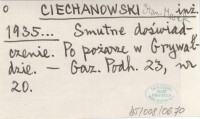 CIECHANOWSKI inż.
1935... Smutne doświad-
czenie. Po pożarze w Grywał-
dzie. — Gaz. Podh. 23, nr
20.
AT/008/0670